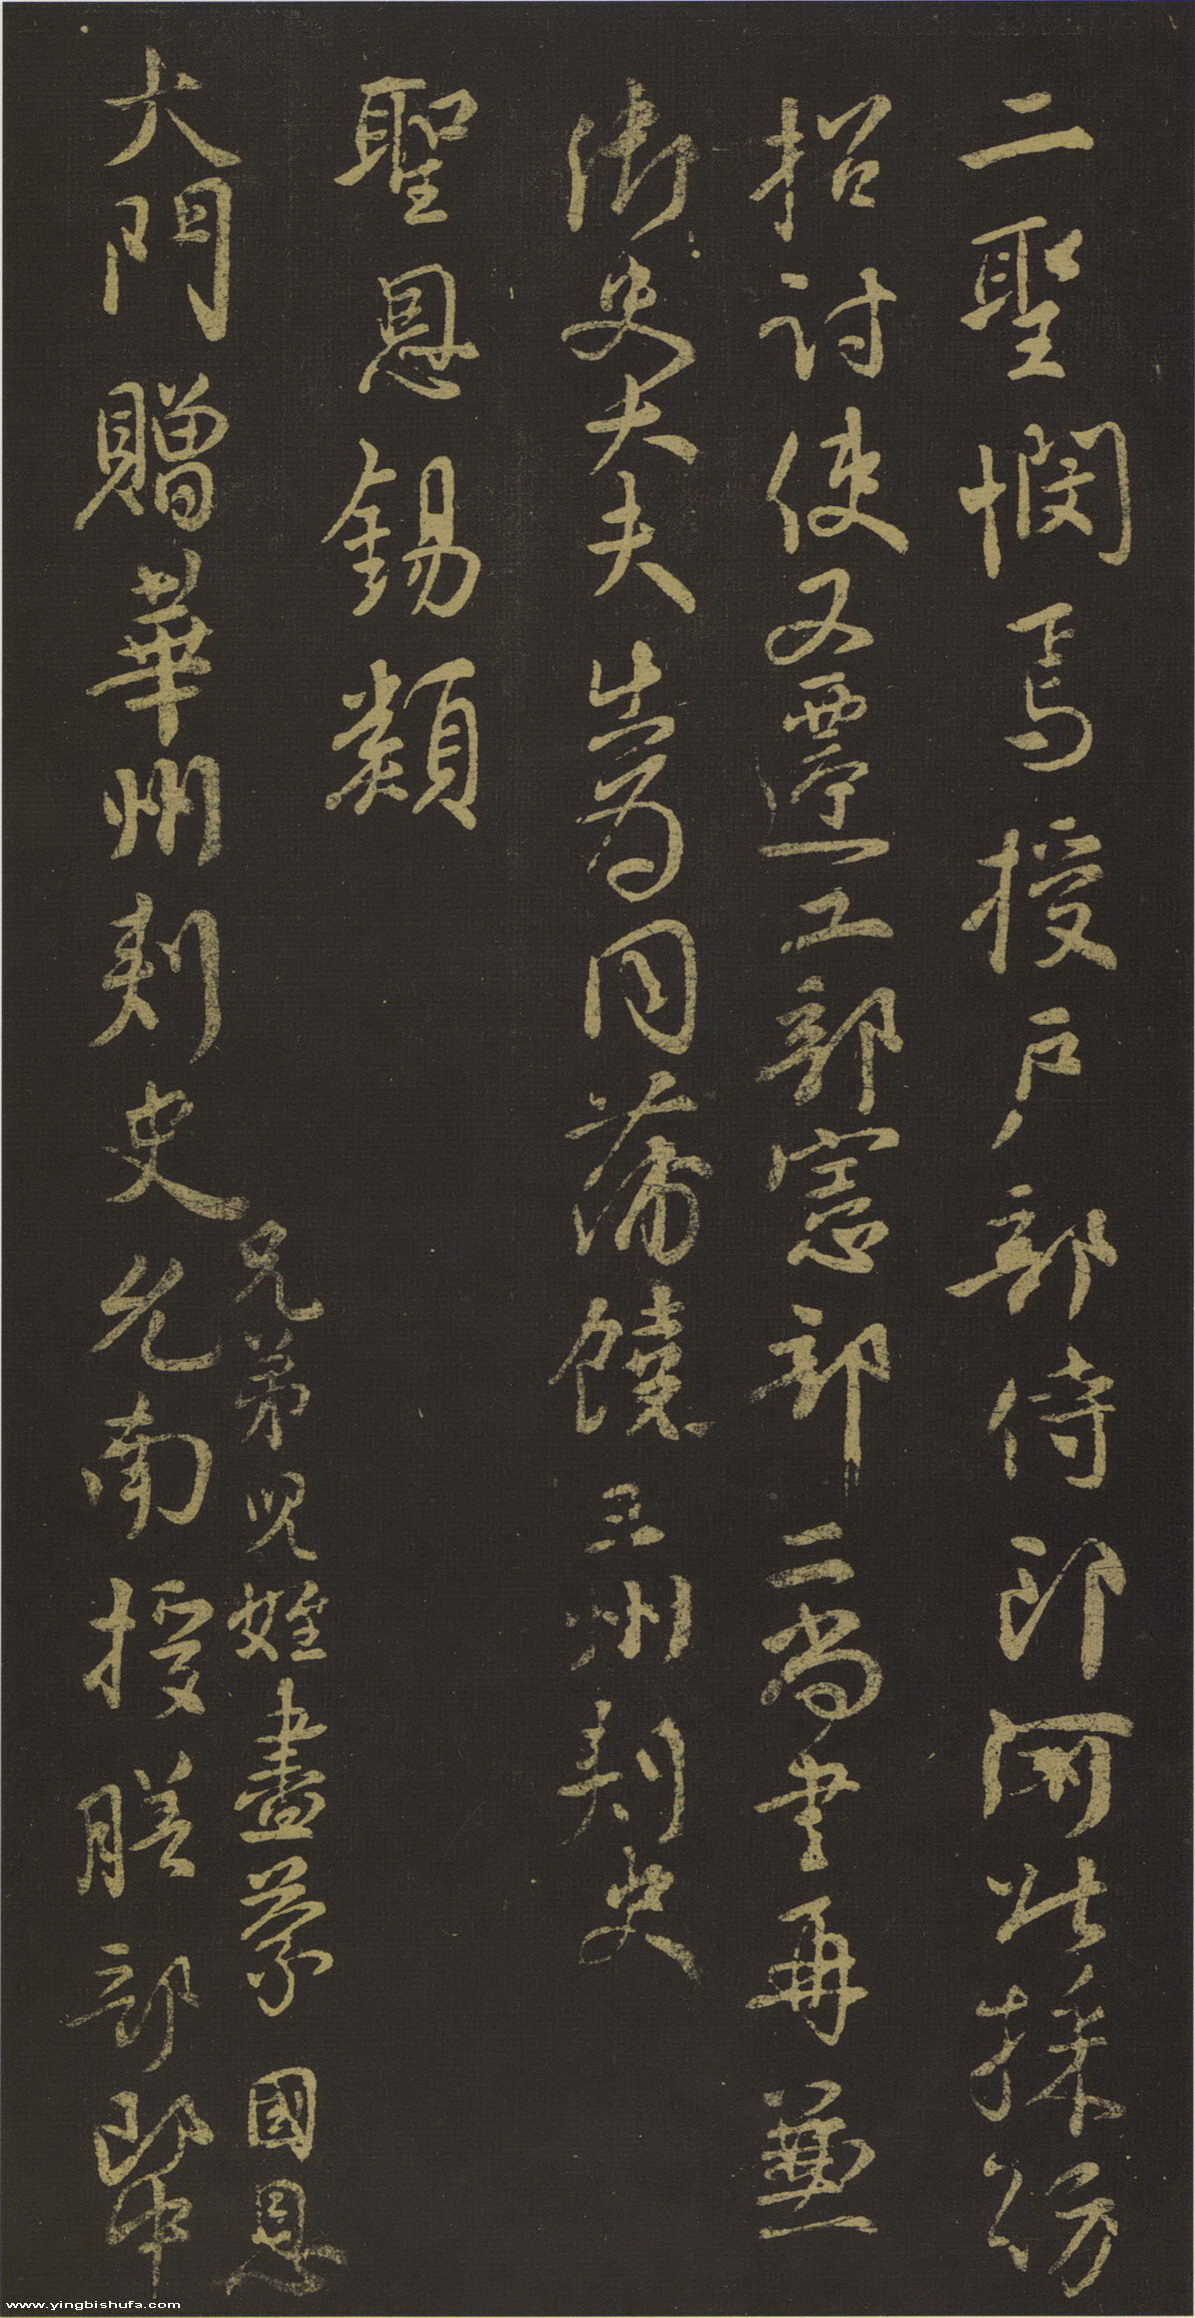 二聖憫焉授戶部侍郎河北採訪
招討使又遷工部憲部二尚書再兼
御史大夫出爲同蒲饒三州刺史
聖恩錫類
兄弟兒姪盡蒙國恩
大門贈華州刺史允南授膳部郎中
www.yingbishufa.com